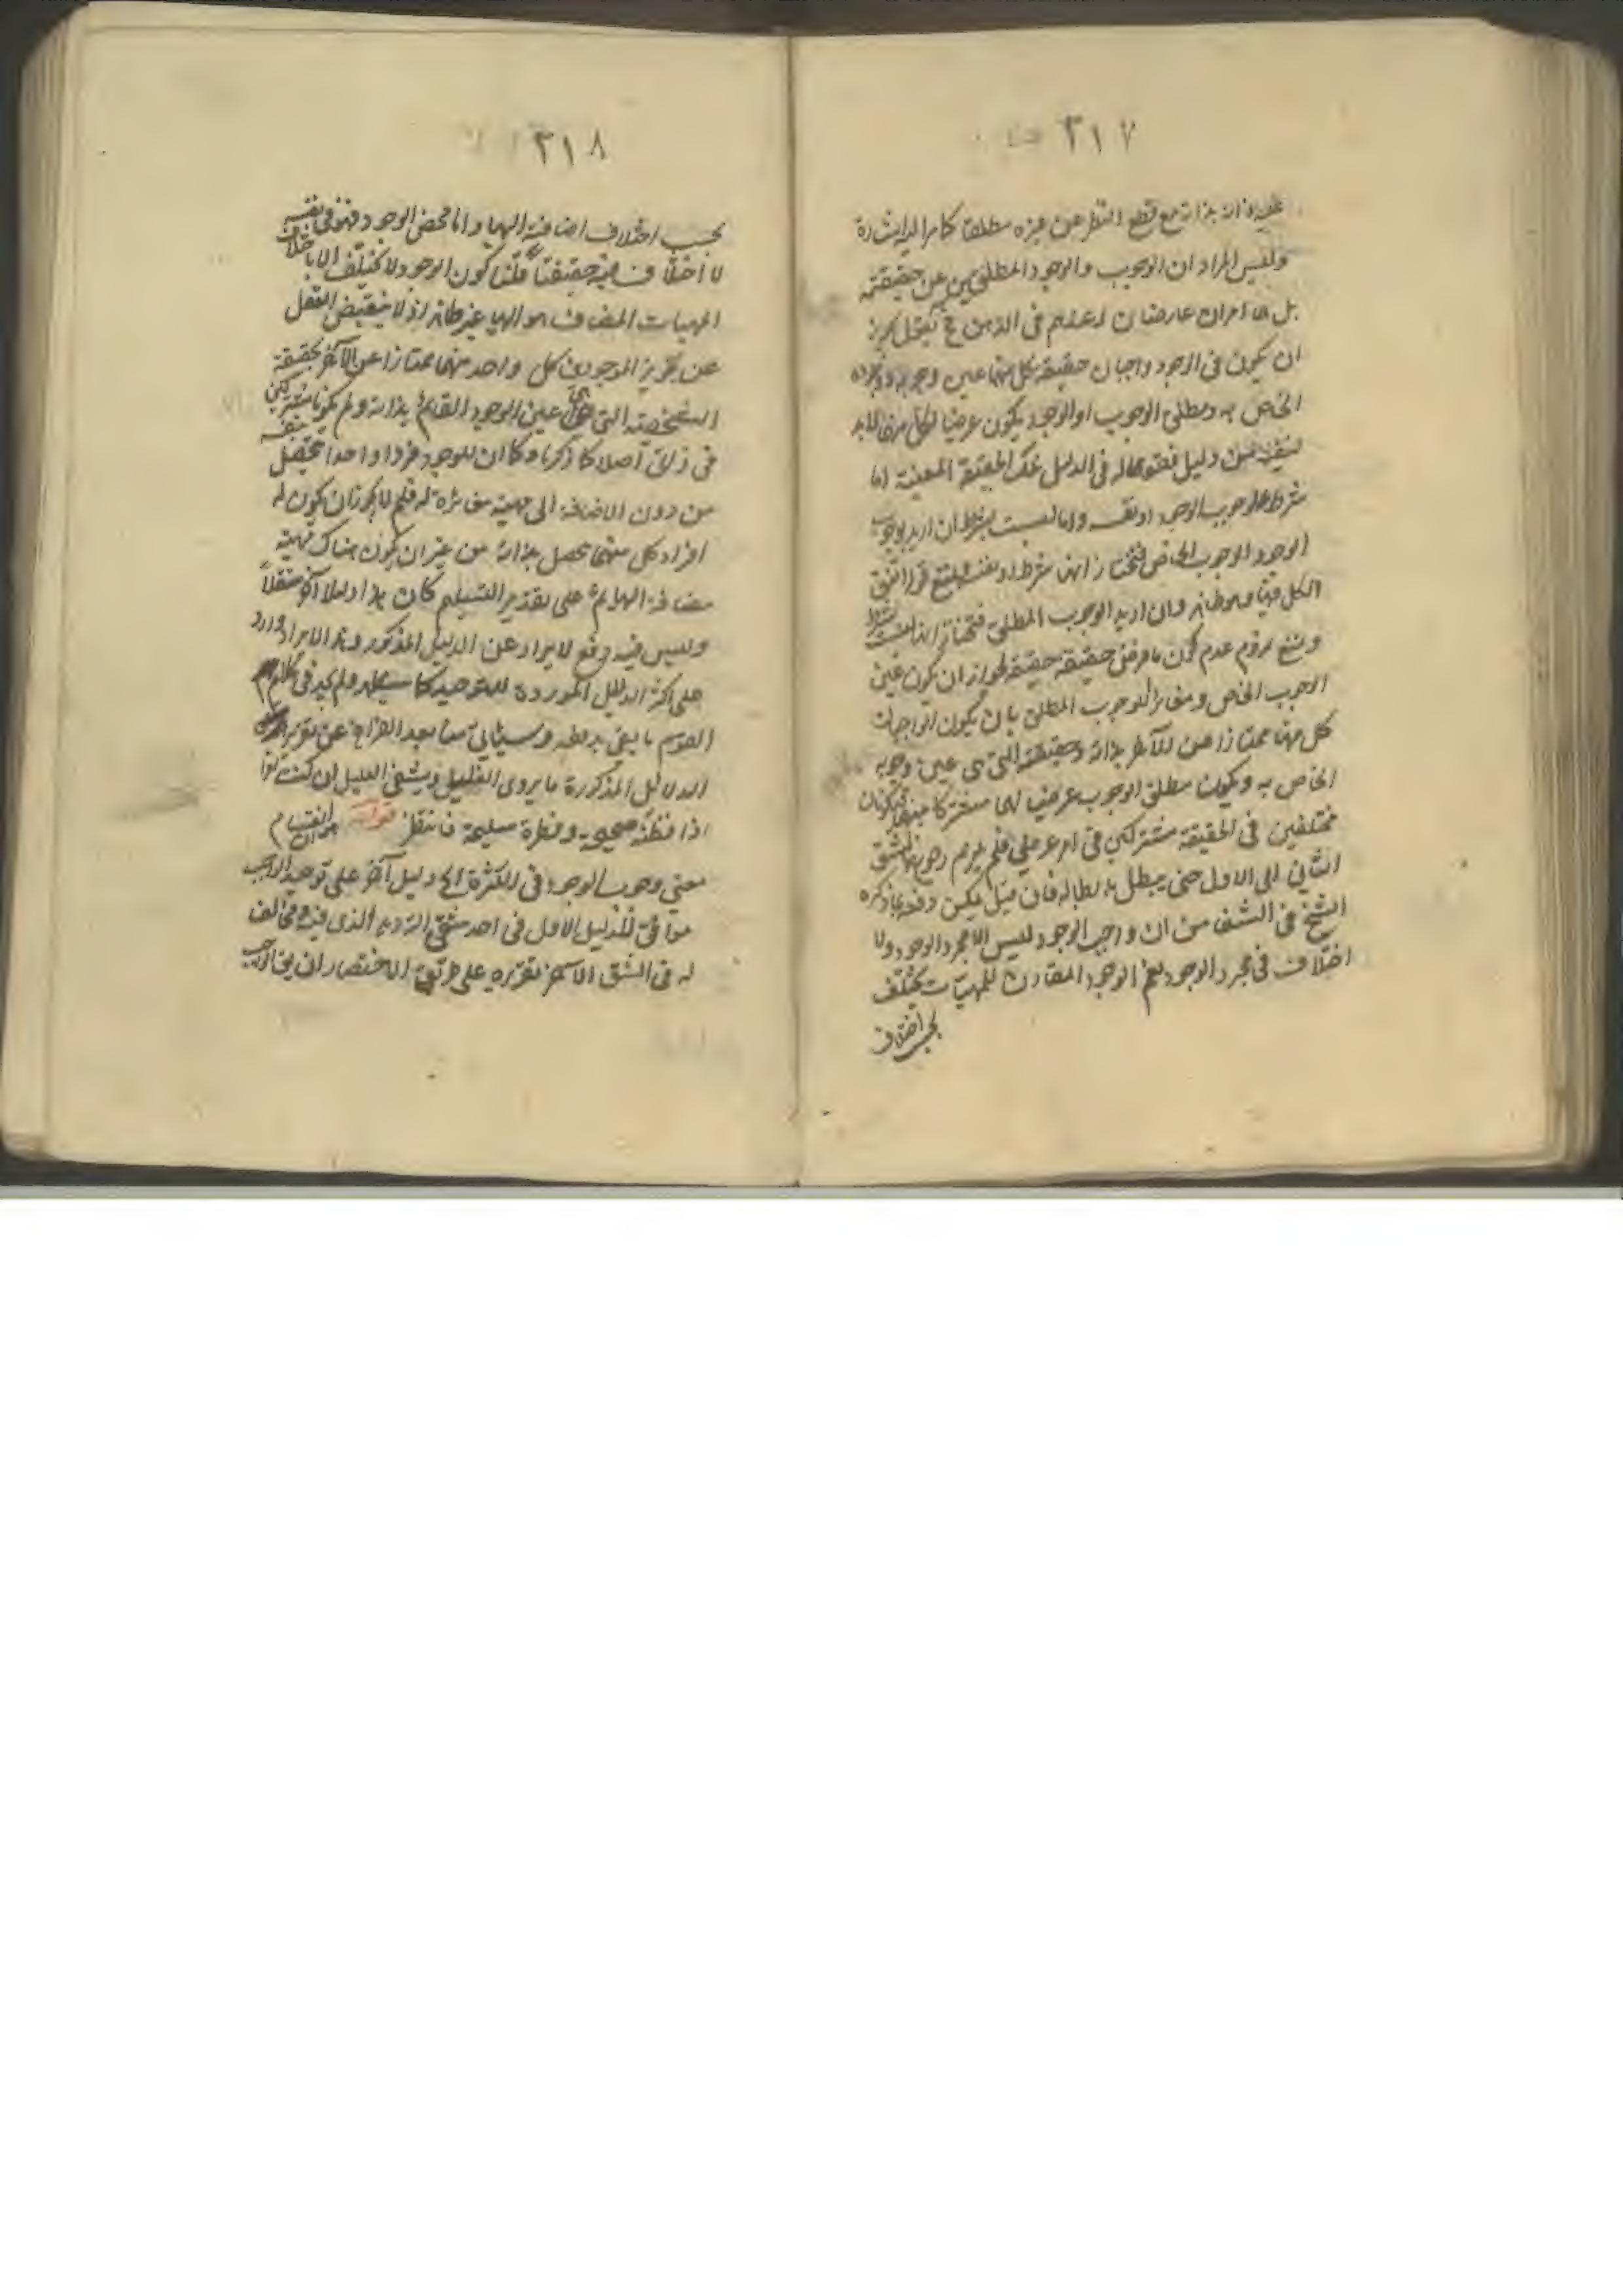 ٣١٧
عليه ذاته بذاته مع قطع النظر عن غيره مطلقا كما مر اليه الاشارة
وليس المراد ان الوجوب والوجود المطلقين عين حقيقته
بل هما امران عارضان له فى الذهن ح يقول يجوز
ان يكون فى الوجود واجبان حقيقة كل منهما عين وجوبه ووجوده
الخاص به ومطلق الوجوب او الوجود يكون عرضيا لهما لابد
لنفيه من دليل فقوله فى الدليل تلك الحقيقة المعينة اما
شرط لوجوب الوجود او نفسه واما ليست بشرط ان اريد بوجوب
الوجود الوجوب الخاص فنختار انها شرط او نفسه
الكل وان اريد الوجوب المطلق فنختار انها ليست بشرط
ونمنع لزوم عدم كون ما فرض حقيقة حقيقة لجواز ان يكون عين
الوجوب الخاص ومغايرا للوجوب المطلق بان يكون الواجبان
كل منهما ممتازا عن الآخر بذاته وحقيقته التى هى عين وجوبه
الخاص به ويكون مطلق الوجوب عرضيا لهما مشتركا بينهما فيكونان
مختلفين فى الحقيقة مشتركين فى امر عرضى فلم يلزم رجوع الشق
الثانى الى الاول حتى يبطل بابطاله فان قيل يمكن دفعه بما ذكره
الشيخ فى الشفا من ان واجب الوجود ليس الا مجرد الوجود ولا
اختلاف فى مجرد الوجود نعم الوجود المقارن للمهيات يختلف
بحسب اختلاف
٣١٨
بحسب اختلاف اضافته اليها واما محض الوجود فهو فى نفسه
لا اختلاف فيه حقيقة قلنا كون الوجود لا يختلف الا باختلاف
المهيات المضاف هو اليها غير ظاهر اذ لا ينقبض العقل
عن تجويز الموجودين كل واحد منهما ممتازا عن الآخر بحقيقته
الشخصية التى هى عين الوجود القائم بذاته ولم يكونا مشتركين
فى ذاتى اصلا كما ذكرنا وكما ان للوجود فردا واحدا يتحصل بنفسه
من دون الاضافة الى مهية مغايرة له فلم لا يجوز ان يكون له
افراد كل منهما تحصل بذاته من غير ان يكون هناك مهية
مضافة اليها ثم على تقدير التسليم كان هذا دليلا آخر مستقلا
وليس فيه دفع الايراد عن الدليل المذكور وهذا الايراد وارد
على اكثر الدلائل الموردة للتوحيد كما سيظهر ولم يجد فى كلام
القوم ما يفى بدفعه وسيأتى منا بعد الفراغ عن تقرير
الدلائل المذكورة ما يروى الغليل ويشفى العليل ان كنت
ذا فطنة صحيحة وفطرة سليمة فانتظر قوله انقسام
معنى وجوب الوجود فى الكثرة الخ دليل آخر على توحيد الواجب
موافق للدليل الاول فى احد شقى الترديد الذى فيه ومخالف
له فى الشق الآخر تقريره على طريق الاختصار ان يقال